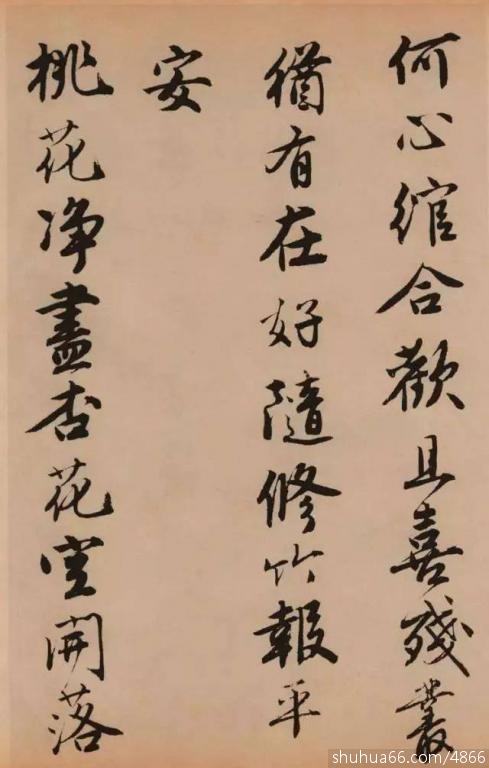 何心綰合歡且喜殘叢
猶有在好隨修竹報平
安
桃花净盡杏花空開落
shuhua66.com/4866